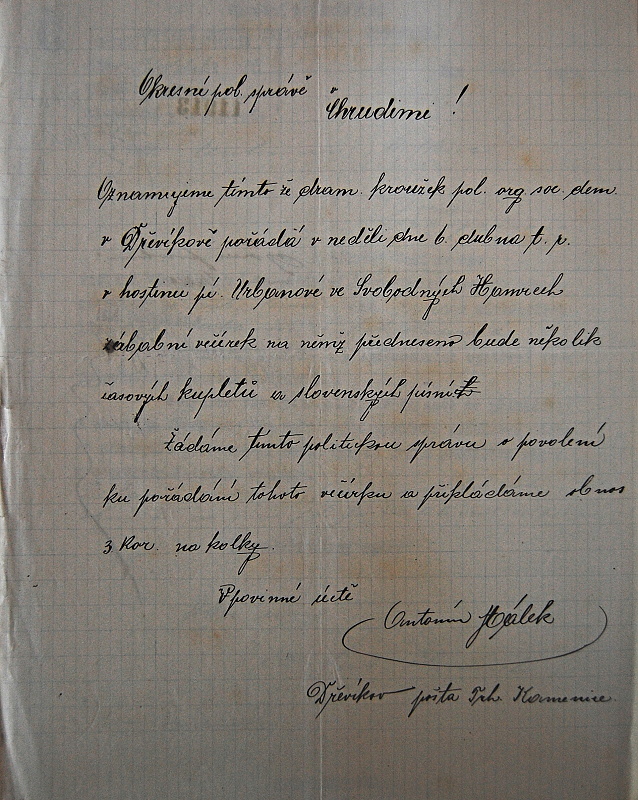 Okresní pol. správě v
Chrudimi !
Oznamujeme tímto že dram. kroužek pol. org. soc. dem.
v Dřevíkově pořádá v neděli dne 6. dubna t. r.
v hostinci pí. Urbanové ve Svobodných Hamrech
zábabní večírek na němž předneseno bude několik
časových kupletů a slovenských písní
Žádáme tímto politickou správu o povolení
ku pořádání tohoto večírku a přikládáme obnos
3 Kor. na kolky.
V povinné úctě
Antonín Hálek
Dřevíkov pošta Trh. Kamenice.